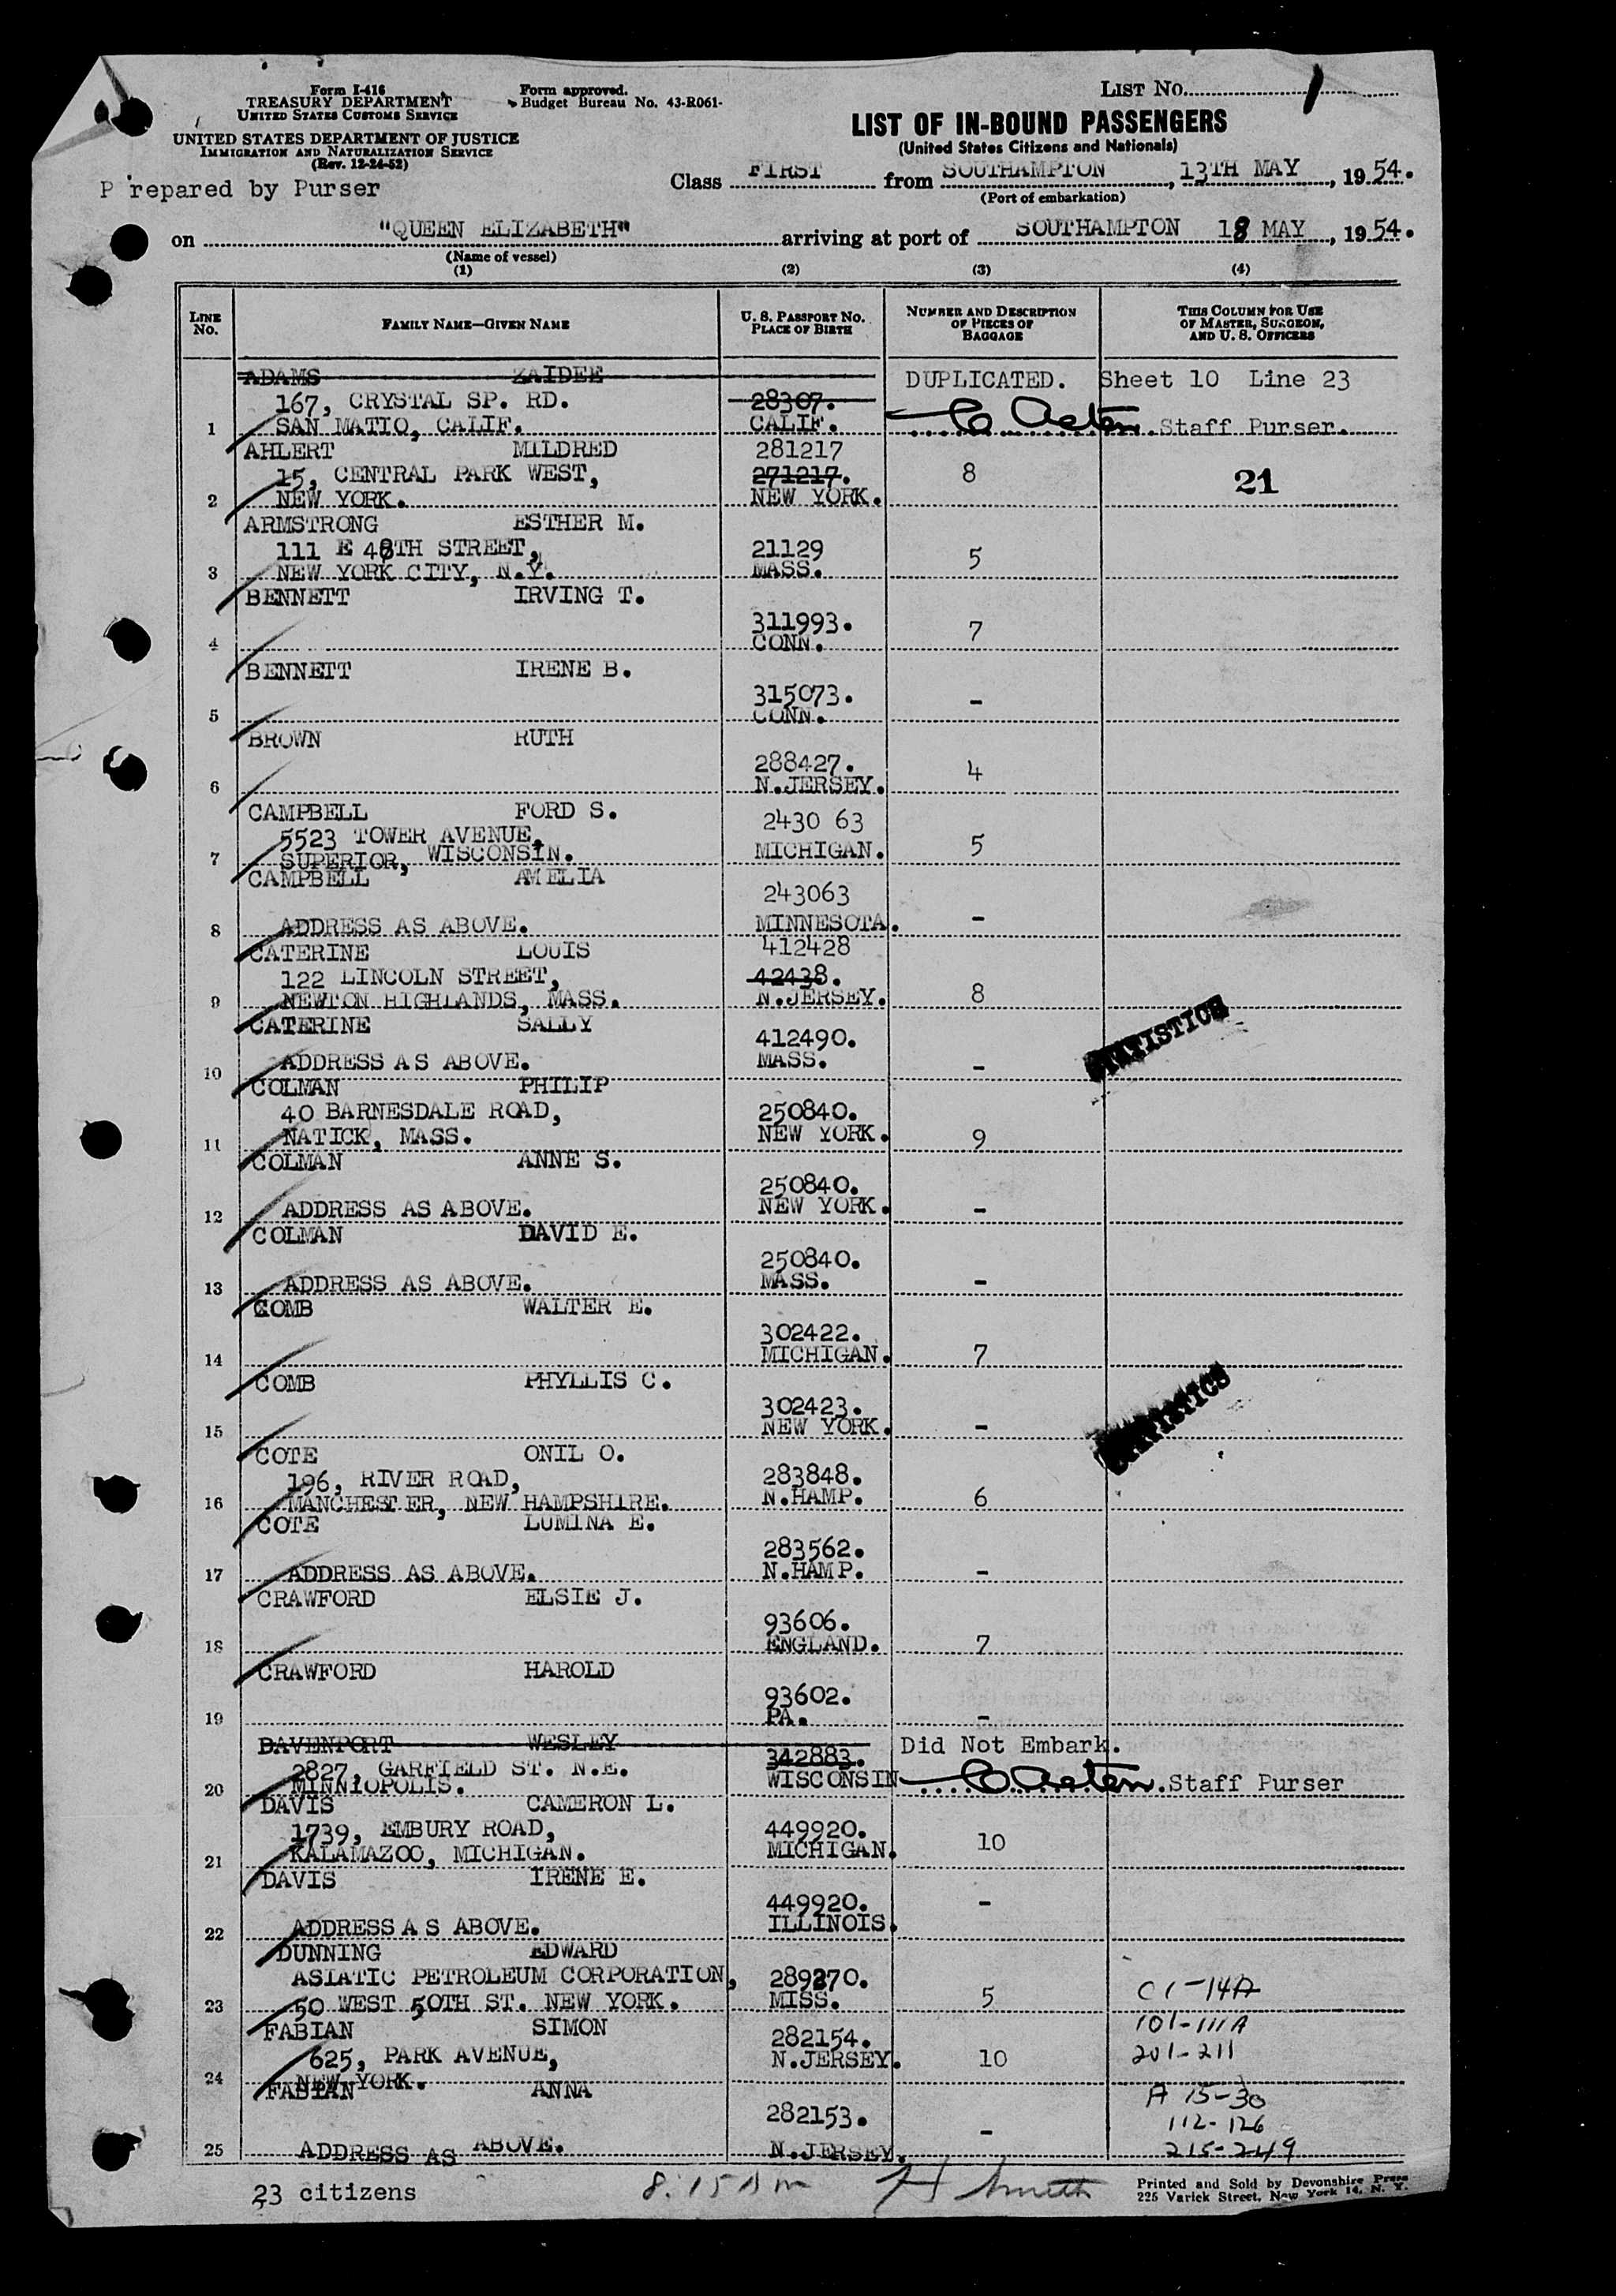 LIST No. 1
Form I-416
TREASURY DEPARTMENT
UNITED STATES CUSTOMS SERVICE
Form approved.
Budget Bureau No. 43-R061-
UNITED STATES DEPARTMENT OF JUSTICE
IMMIGRATION AND NATURALIZATION SERVICE
(Rev. 12-24-52)
LIST OF IN-BOUND PASSENGERS
(United States Citizens and Nationals)
P repared by Purser
Class FIRST from SOUTHAMPTON, 13TH MAY, 1954.
(Port of embarkation)
on "QUEEN ELIZABETH" arriving at port of SOUTHAMPTON 18 MAY, 1954.
(Name of vessel)
(1) (2) (3) (4)
LINE No. FAMILY NAME—GIVEN NAME U. S. PASSPORT No. PLACE OF BIRTH NUMBER AND DESCRIPTION OF PIECES OF BAGGAGE THIS COLUMN FOR USE OF MASTER, SURGEON, AND U. S. OFFICERS
ADAMS ZAIDEE DUPLICATED. Sheet 10 Line 23
167, CRYSTAL SP. RD. 28307.
1 SAN MATIO, CALIF. CALIF. Staff Purser.
AHLERT MILDRED 281217
15, CENTRAL PARK WEST, 271217. 8 21
2 NEW YORK. NEW YORK.
ARMSTRONG ESTHER M.
111 E 48TH STREET, 21129 5
3 NEW YORK CITY, N.Y. MASS.
BENNETT IRVING T.
311993. 7
4 CONN.
BENNETT IRENE B.
315073. -
5 CONN.
BROWN RUTH
288427. 4
6 N.JERSEY.
CAMPBELL FORD S. 2430 63
5523 TOWER AVENUE,
7 SUPERIOR, WISCONSIN. MICHIGAN. 5
CAMPBELL AMELIA 243063
8 ADDRESS AS ABOVE. MINNESOTA. -
CATERINE LOUIS 412428
122 LINCOLN STREET, 42438.
9 NEWTON HIGHLANDS, MASS. N.JERSEY. 8
CATERINE SALLY 412490.
10 ADDRESS AS ABOVE. MASS. -
STATISTICS
COLMAN PHILIP
40 BARNESDALE ROAD, 250840.
11 NATICK, MASS. NEW YORK. 9
COLMAN ANNE S.
250840.
12 ADDRESS AS ABOVE. NEW YORK. -
COLMAN DAVID E.
250840.
13 ADDRESS AS ABOVE. MASS. -
COMB WALTER E.
302422.
14 MICHIGAN. 7
COMB PHYLLIS C.
302423.
15 NEW YORK. -
STATISTICS
COTE ONIL O.
196, RIVER ROAD, 283848.
16 MANCHESTER, NEW HAMPSHIRE. N.HAMP. 6
COTE LUMINA E.
283562.
17 ADDRESS AS ABOVE. N.HAMP. -
CRAWFORD ELSIE J.
93606.
18 ENGLAND. 7
CRAWFORD HAROLD
93602.
19 PA. -
DAVENPORT WESLEY Did Not Embark.
2827, GARFIELD ST. N.E. 342883.
20 MINNIOPOLIS. WISCONSIN Staff Purser
DAVIS CAMERON L.
1739, EMBURY ROAD, 449920.
21 KALAMAZOO, MICHIGAN. MICHIGAN. 10
DAVIS IRENE E.
449920. -
22 ADDRESS A S ABOVE. ILLINOIS.
DUNNING EDWARD
ASIATIC PETROLEUM CORPORATION, 289270. C1-14A
23 50 WEST 50TH ST. NEW YORK. MISS. 5
FABIAN SIMON 282154. 101-111A
625, PARK AVENUE, N.JERSEY. 10 201-211
24 NEW YORK.
FABIAN ANNA A 15-30
282153. - 112-126
25 ADDRESS AS ABOVE. N.JERSEY. 215-249
23 citizens 8:15 Am H Smith
Printed and Sold by Devonshire Press
225 Varick Street, New York 14, N. Y.